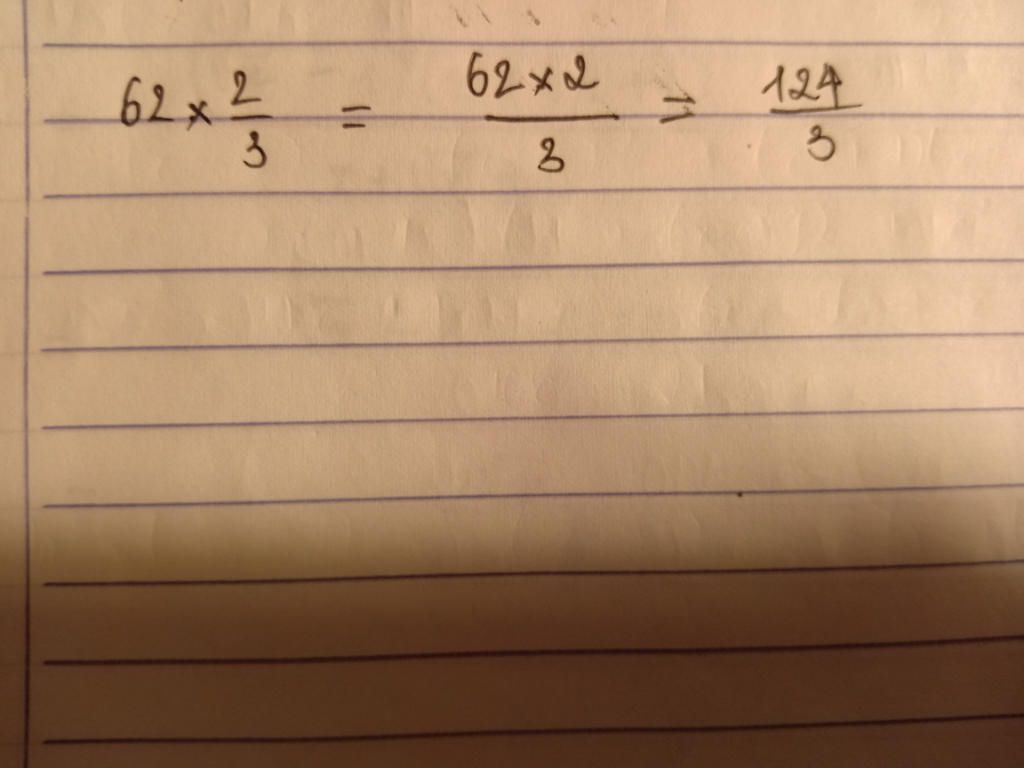 62 × 2/3 = 62×2/3 = 124/3